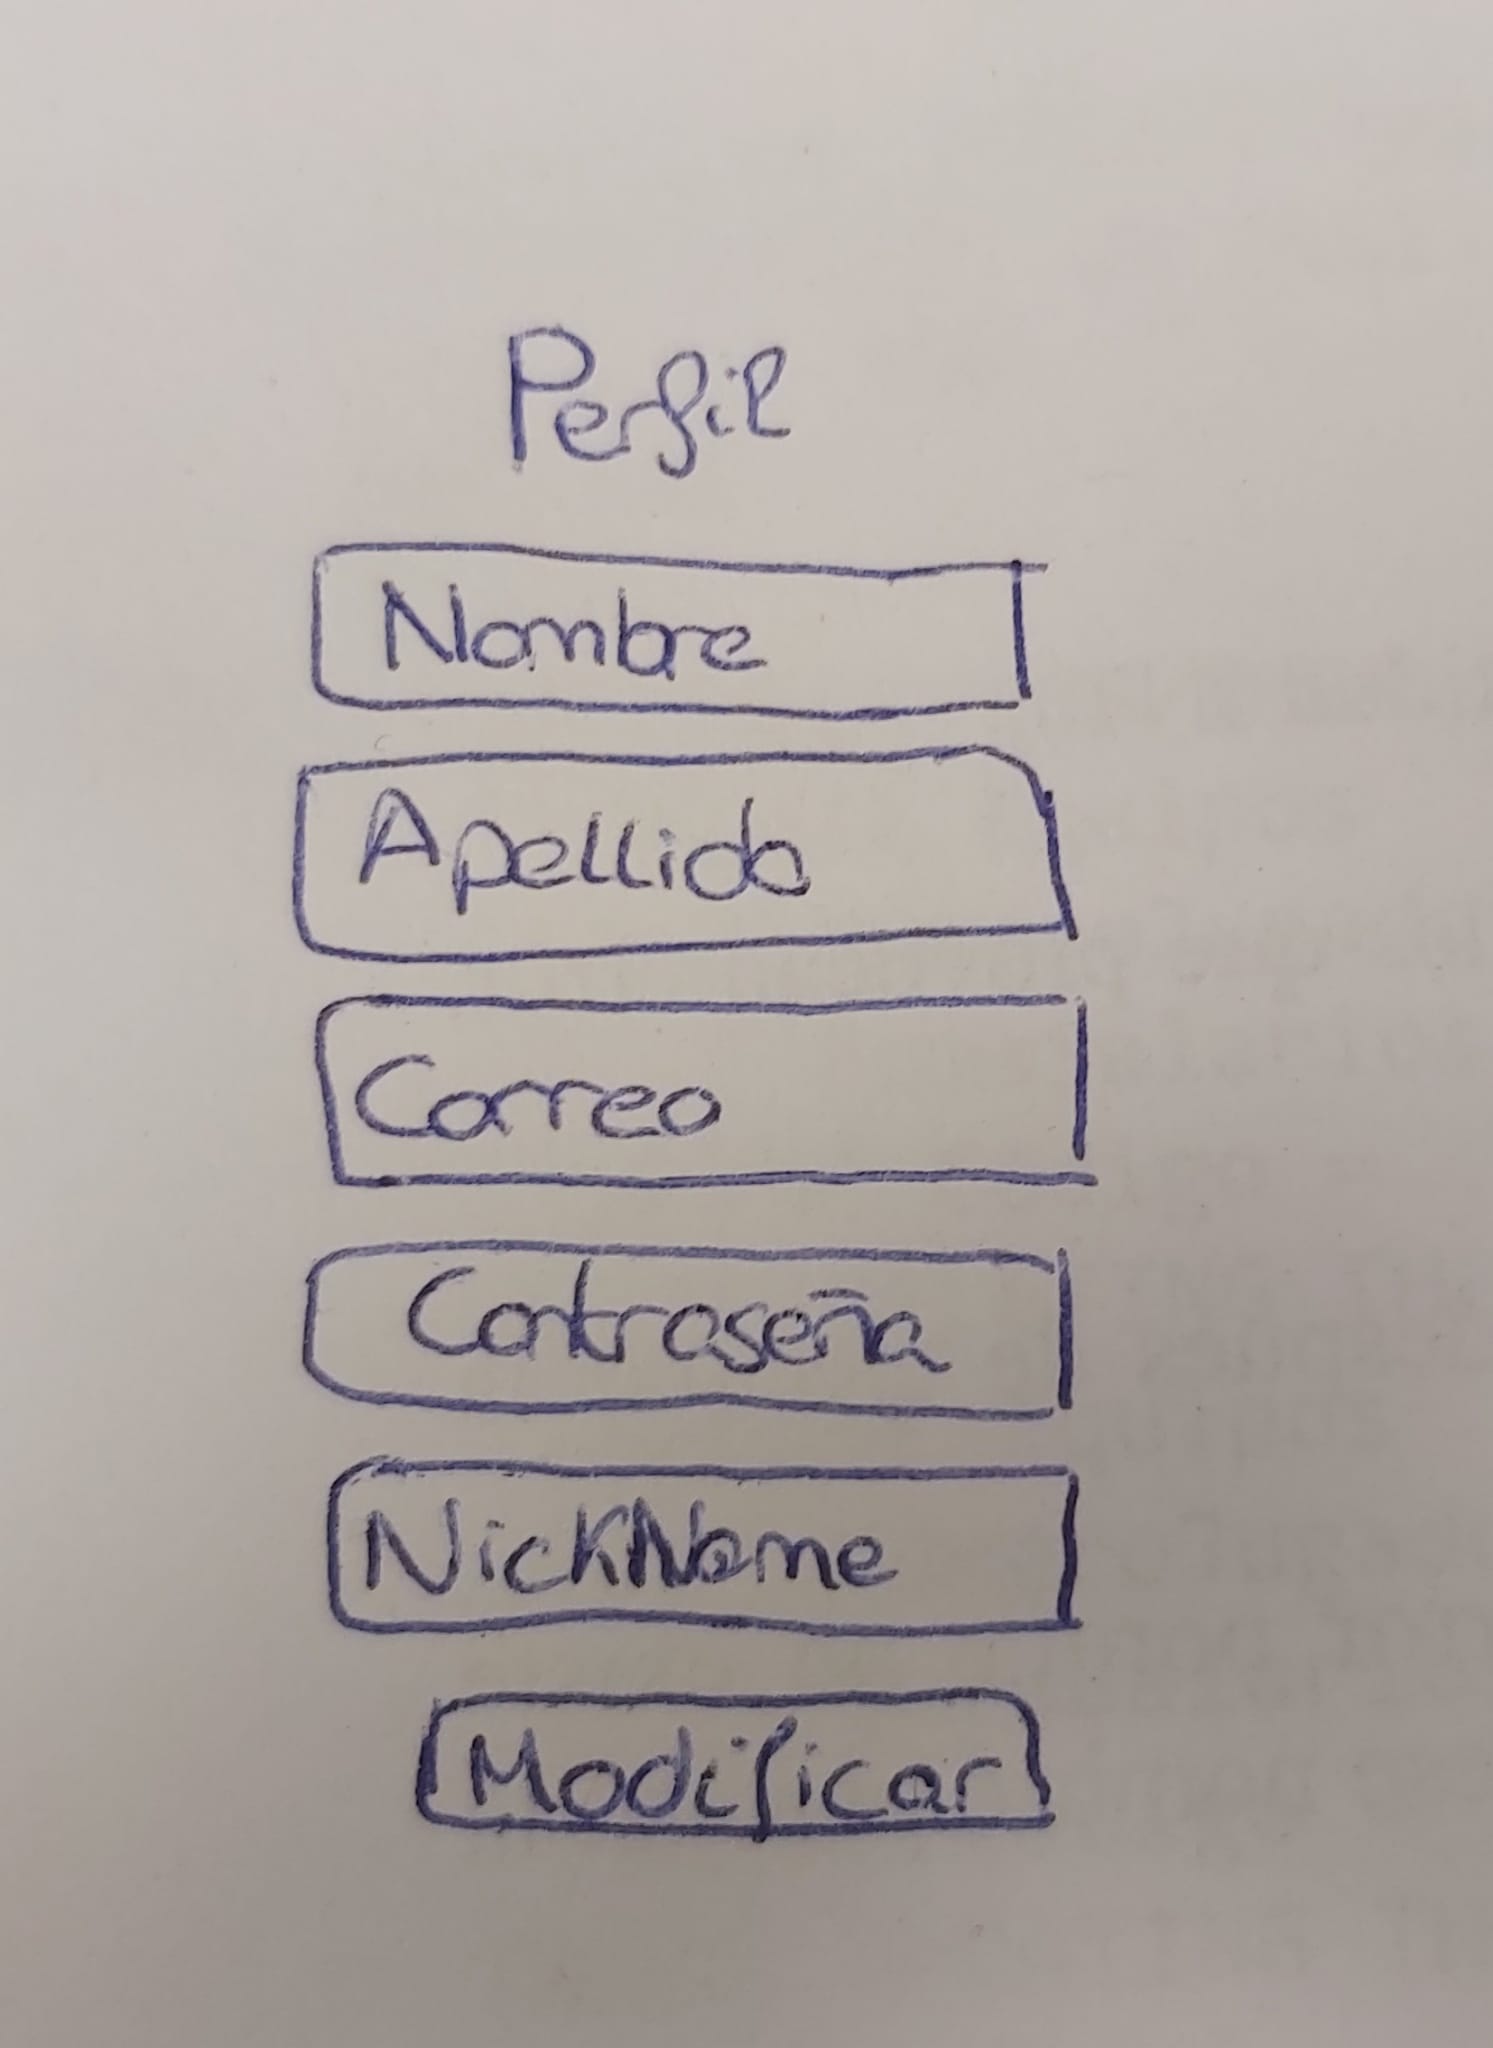 Perfil
Nombre
Apellido
Correo
Contraseña
NickName
Modificar